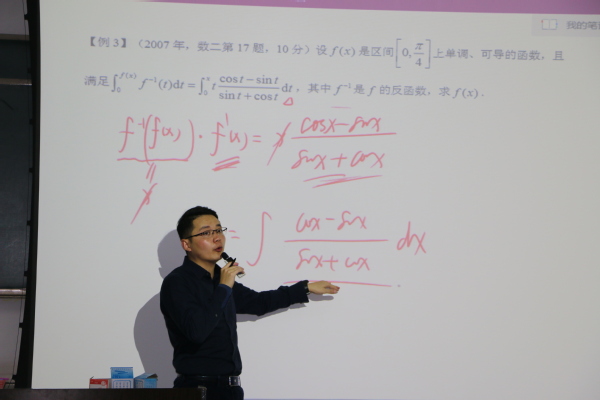 我的笔
【例 3】（2007 年，数二第 17 题，10 分）设 f(x) 是区间[0, π/4]上单调、可导的函数，且
满足∫₀^{f(x)} f⁻¹(t)dt = ∫₀^x t (cos t − sin t)/(sin t + cos t) dt，其中 f⁻¹ 是 f 的反函数，求 f(x).
f⁻¹(f(x)) · f'(x) = x (cosx − sinx)/(sinx + cosx)
=
x
= ∫ (cosx − sinx)/(sinx + cosx) dx